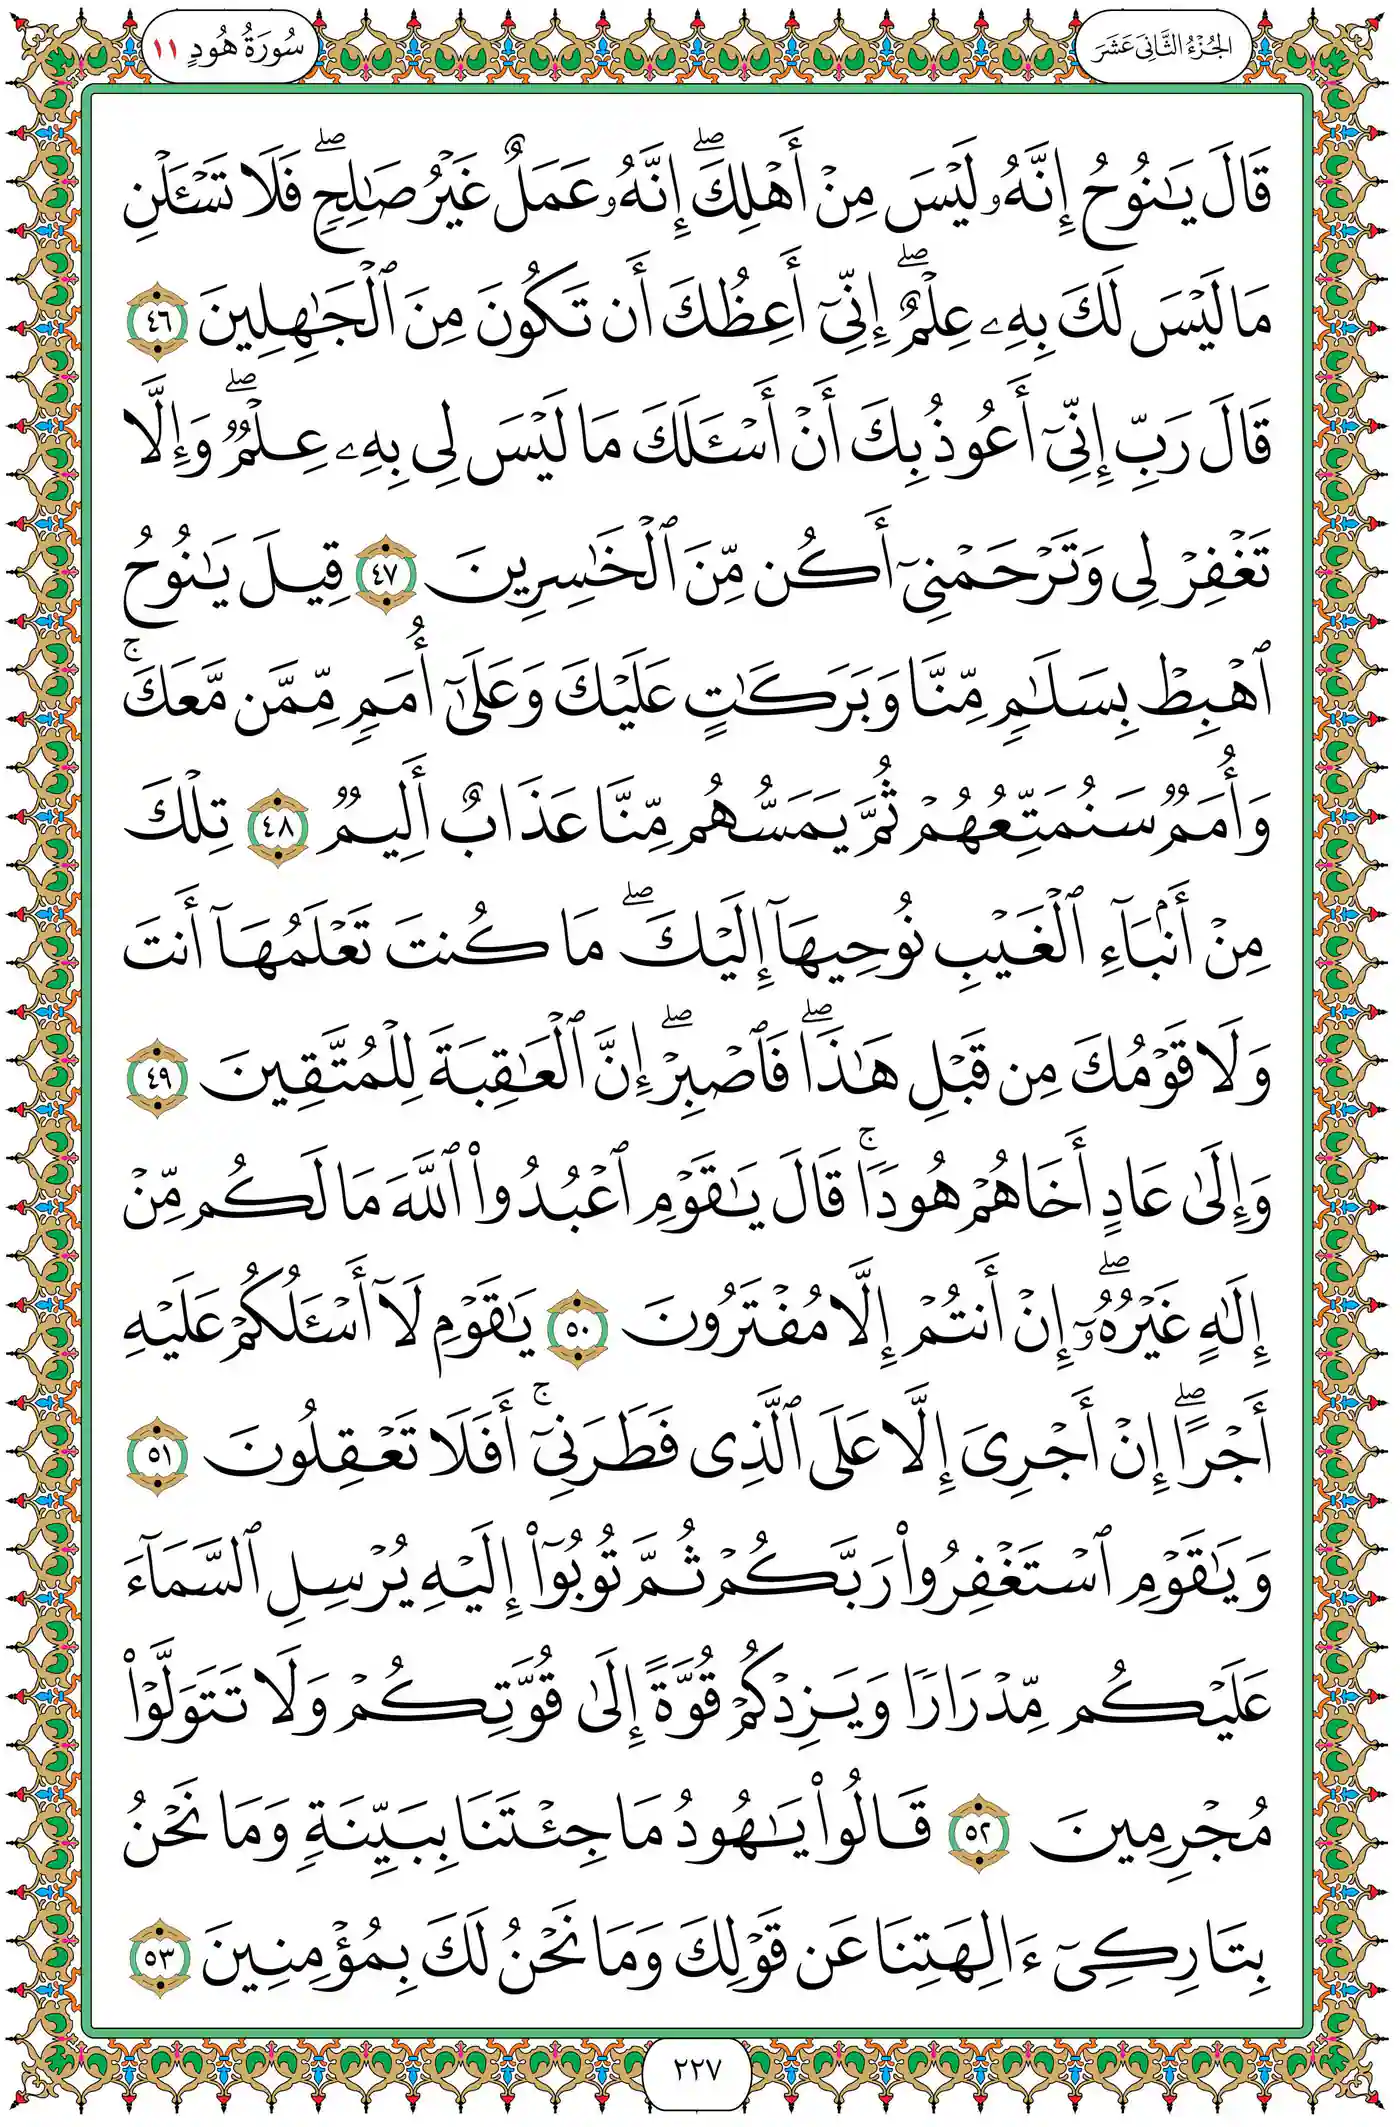 الجُزْءُ الثَّانِي عَشَرَ
سُورَةُ هُودٍ ١١
قَالَ يَـٰنُوحُ إِنَّهُۥ لَيْسَ مِنْ أَهْلِكَ ۖ إِنَّهُۥ عَمَلٌ غَيْرُ صَـٰلِحٍ ۖ فَلَا تَسْـَٔلْنِ
مَا لَيْسَ لَكَ بِهِۦ عِلْمٌ ۖ إِنِّىٓ أَعِظُكَ أَن تَكُونَ مِنَ ٱلْجَـٰهِلِينَ ٤٦
قَالَ رَبِّ إِنِّىٓ أَعُوذُ بِكَ أَنْ أَسْـَٔلَكَ مَا لَيْسَ لِى بِهِۦ عِلْمٌ ۖ وَإِلَّا
تَغْفِرْ لِى وَتَرْحَمْنِىٓ أَكُن مِّنَ ٱلْخَـٰسِرِينَ ٤٧ قِيلَ يَـٰنُوحُ
ٱهْبِطْ بِسَلَـٰمٍ مِّنَّا وَبَرَكَـٰتٍ عَلَيْكَ وَعَلَىٰٓ أُمَمٍ مِّمَّن مَّعَكَ ۚ
وَأُمَمٌ سَنُمَتِّعُهُمْ ثُمَّ يَمَسُّهُم مِّنَّا عَذَابٌ أَلِيمٌ ٤٨ تِلْكَ
مِنْ أَنۢبَآءِ ٱلْغَيْبِ نُوحِيهَآ إِلَيْكَ ۖ مَا كُنتَ تَعْلَمُهَآ أَنتَ
وَلَا قَوْمُكَ مِن قَبْلِ هَـٰذَا ۖ فَٱصْبِرْ ۖ إِنَّ ٱلْعَـٰقِبَةَ لِلْمُتَّقِينَ ٤٩
وَإِلَىٰ عَادٍ أَخَاهُمْ هُودًا ۚ قَالَ يَـٰقَوْمِ ٱعْبُدُوا۟ ٱللَّهَ مَا لَكُم مِّنْ
إِلَـٰهٍ غَيْرُهُۥٓ ۖ إِنْ أَنتُمْ إِلَّا مُفْتَرُونَ ٥٠ يَـٰقَوْمِ لَآ أَسْـَٔلُكُمْ عَلَيْهِ
أَجْرًا ۖ إِنْ أَجْرِىَ إِلَّا عَلَى ٱلَّذِى فَطَرَنِىٓ ۚ أَفَلَا تَعْقِلُونَ ٥١
وَيَـٰقَوْمِ ٱسْتَغْفِرُوا۟ رَبَّكُمْ ثُمَّ تُوبُوٓا۟ إِلَيْهِ يُرْسِلِ ٱلسَّمَآءَ
عَلَيْكُم مِّدْرَارًا وَيَزِدْكُمْ قُوَّةً إِلَىٰ قُوَّتِكُمْ وَلَا تَتَوَلَّوْا۟
مُجْرِمِينَ ٥٢ قَالُوا۟ يَـٰهُودُ مَا جِئْتَنَا بِبَيِّنَةٍ وَمَا نَحْنُ
بِتَارِكِىٓ ءَالِهَتِنَا عَن قَوْلِكَ وَمَا نَحْنُ لَكَ بِمُؤْمِنِينَ ٥٣
٢٢٧